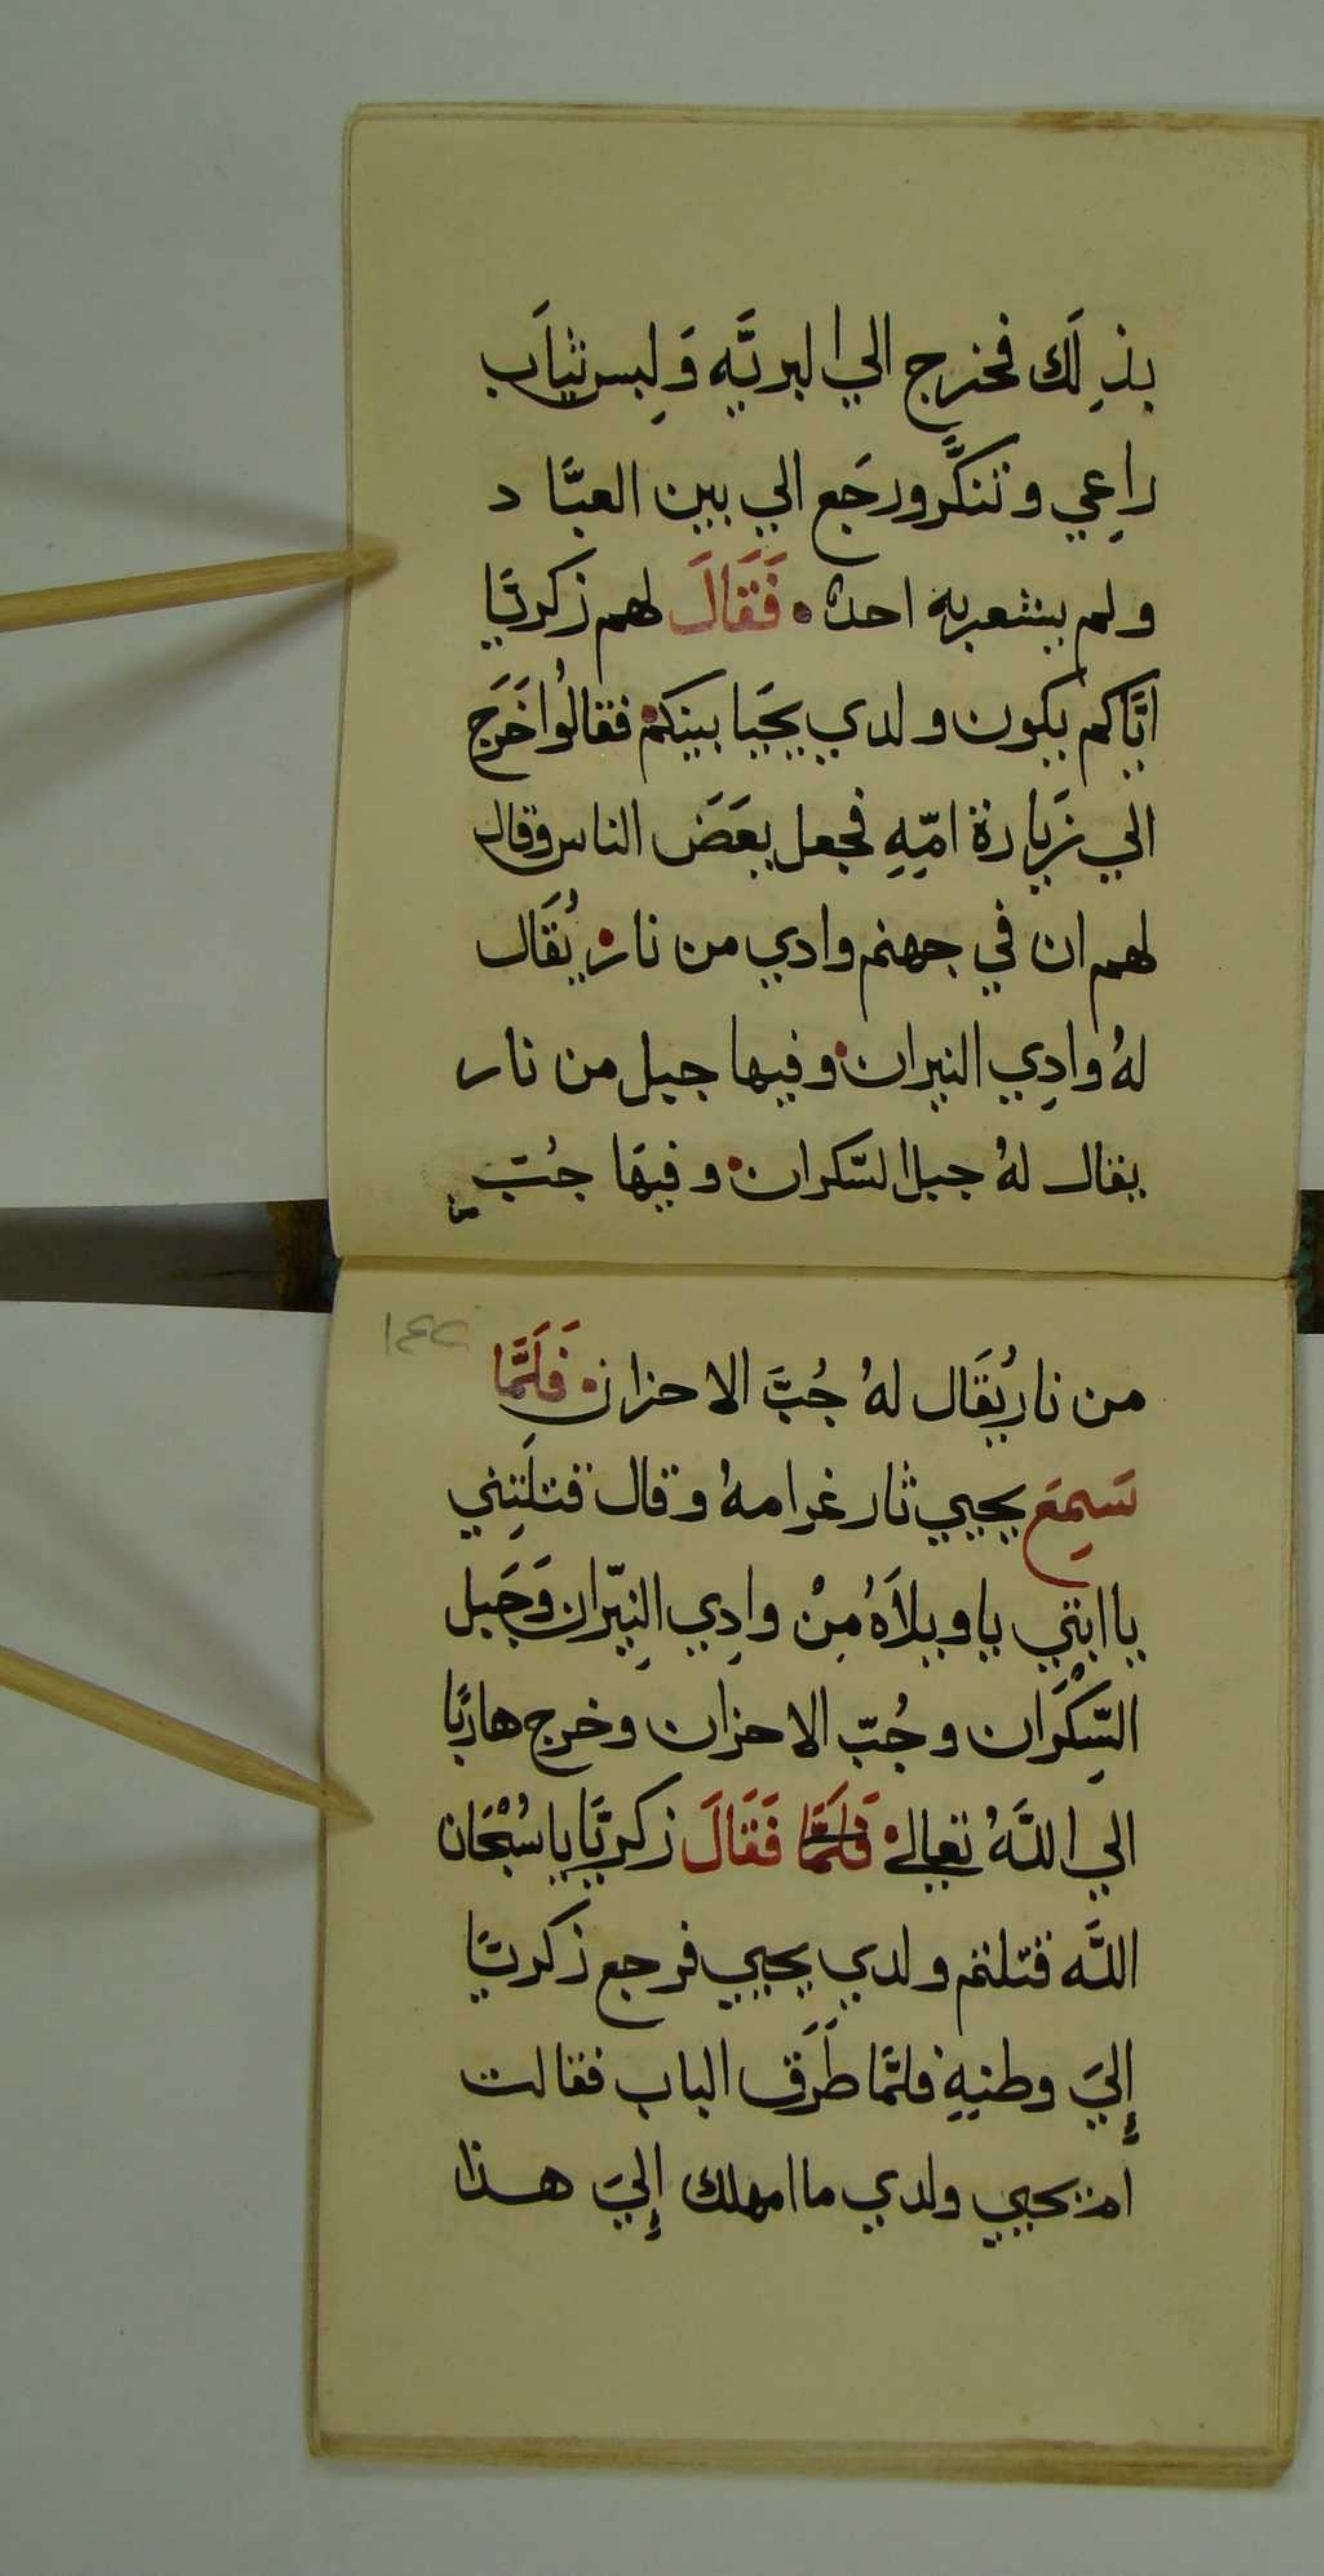 بذِلَك فخرج الي البريَّه وَلِبس ثيابَ
راعِي وتنكَّر ورجَع الي بين العبَّاد
ولم يشعر به احدٌ • فَقَالَ لهم زكريَّا
ايَّاكم يكون ولدي يحَيا بينكم • فقالُوا خَرَج
الي زيَارة امّهِ فجعل يعَضَ الناس وقال
لهم ان في جهنم وادي من نار • يُقَال
لهُ وادِي النيران • وفيها جبل من نار
يقال لهُ جبل السّكران • وفيهَا جُبّ
من
١٤٢
من نار يُقَال لهُ جُبَّ الاحزان • فَلَمَّا
سَمِعَ يحيي ثار غرامهُ وقال قتلَتِني
يا ابتي يا ويلاَهُ مِنْ وادِي النِيّران وَجَبل
السِّكْرَان وجُبّ الاحزان وخرج هاربًا
الي اللَّهُ تعالي • فَلَمَّا فَقَالَ زكريَّا يا سُبْحَان
اللَّه قتلتم ولدي يحيي فرجع زكريَّا
إليَ وطنهِ فلمَّا طَرَق الباب فقالت
ام يحيي ولدي ما امهلك إليَ هذا